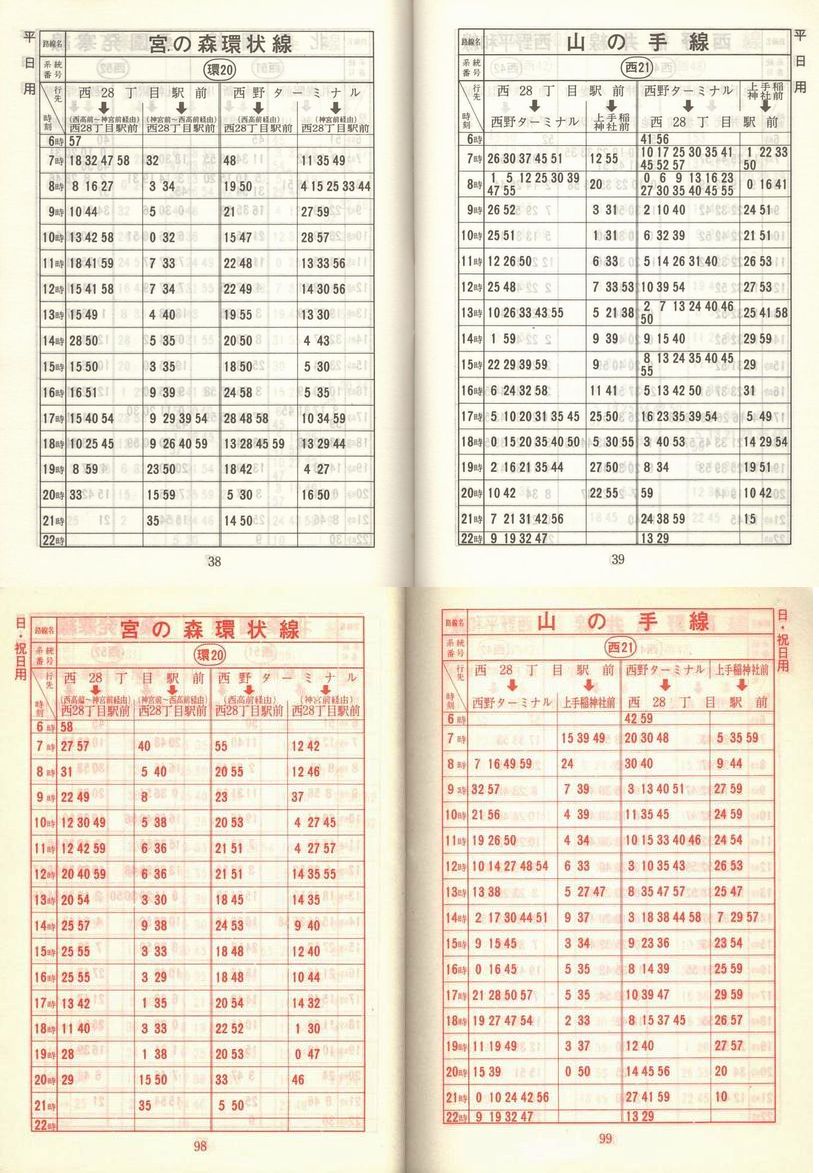 平日用
路線名 宮の森環状線
系統番号 環20
行先 西28丁目駅前 西野ターミナル
時刻 (西高前~神宮前経由)西28丁目駅前 (神宮前~西高前経由)西28丁目駅前 (西高前経由)西28丁目駅前 (神宮前経由)西28丁目駅前
6時 57
7時 18 32 47 58 32 48 11 35 49
8時 8 16 27 3 34 19 50 4 15 25 33 44
9時 10 44 5 21 27 59
10時 13 42 58 0 32 15 47 28 57
11時 18 41 59 7 33 22 48 13 33 56
12時 15 41 58 7 34 22 49 14 30 56
13時 15 49 4 40 19 55 13 30
14時 28 50 5 35 20 50 4 43
15時 15 50 3 35 18 50 5 30
16時 16 51 9 39 24 58 5 35
17時 15 40 54 9 29 39 54 28 48 58 10 34 59
18時 10 25 45 9 26 40 59 13 28 45 59 13 29 44
19時 8 59 23 50 18 42 4 27
20時 33 15 59 5 30 16 50
21時 35 14 50
22時
38
平日用
路線名 山の手線
系統番号 西21
行先 西28丁目駅前 西野ターミナル 上手稲神社前
時刻 西野ターミナル 上手稲神社前 西28丁目駅前
6時 41 56
7時 26 30 37 45 51 12 55 10 17 25 30 35 41 45 52 57 1 22 33 50
8時 1 5 12 25 30 39 47 55 20 0 6 9 13 16 23 27 30 35 40 45 55 0 16 41
9時 26 52 3 31 2 10 40 24 51
10時 25 51 1 31 6 32 39 21 51
11時 12 26 50 6 33 5 14 26 31 40 26 53
12時 25 48 7 33 53 10 39 54 27 53
13時 10 26 33 43 55 5 21 38 2 7 13 24 40 46 50 25 41 58
14時 1 59 9 39 9 15 40 29 59
15時 22 29 39 59 9 8 13 24 35 40 45 55 29
16時 6 24 32 58 11 41 5 13 42 50 31
17時 5 10 20 31 35 45 25 50 16 23 35 39 54 5 49
18時 0 15 20 35 40 50 5 30 55 3 40 53 14 29 54
19時 2 16 21 35 44 27 50 8 34 19 51
20時 10 42 22 55 59 10 42
21時 7 21 31 42 56 24 38 59 15
22時 9 19 32 47 13 29
39
日・祝日用
路線名 宮の森環状線
系統番号 環20
行先 西28丁目駅前 西野ターミナル
時刻 (西高前~神宮前経由)西28丁目駅前 (神宮前~西高前経由)西28丁目駅前 (西高前経由)西28丁目駅前 (神宮前経由)西28丁目駅前
6時 58
7時 27 57 40 55 12 42
8時 31 5 40 20 55 12 46
9時 22 49 8 23 37
10時 12 30 49 5 38 20 53 4 27 45
11時 12 42 59 6 36 21 51 4 27 57
12時 20 40 59 6 36 21 51 14 35 55
13時 20 54 3 30 18 45 14 35
14時 25 57 9 38 24 53 9 40
15時 25 55 3 33 18 48 12 40
16時 25 55 3 29 18 48 10 44
17時 13 42 1 35 20 54 14 32
18時 11 40 3 33 22 52 1 30
19時 28 1 38 20 53 0 47
20時 29 15 50 33 46
21時 35 5 50
22時
98
日・祝日用
路線名 山の手線
系統番号 西21
行先 西28丁目駅前 西野ターミナル 上手稲神社前
時刻 西野ターミナル 上手稲神社前 西28丁目駅前
6時 42 59
7時 15 39 49 20 30 48 5 35 59
8時 7 16 49 59 24 30 40 9 44
9時 32 57 7 39 3 13 40 51 27 59
10時 21 56 4 39 11 35 45 24 59
11時 19 26 50 4 34 10 15 33 40 46 24 54
12時 10 14 27 48 54 6 33 3 10 35 43 26 53
13時 13 38 5 27 47 8 35 47 57 25 47
14時 2 17 30 44 51 9 37 3 18 38 44 58 7 29 57
15時 9 15 45 3 34 9 23 36 23 54
16時 0 16 45 5 35 8 14 39 25 59
17時 21 28 50 57 5 35 10 39 47 29 59
18時 19 27 47 54 2 33 8 15 37 45 26 57
19時 11 19 49 3 37 12 40 27 57
20時 15 39 0 50 14 45 56 20
21時 0 10 24 42 56 27 41 59 10
22時 9 19 32 47 13 29
99